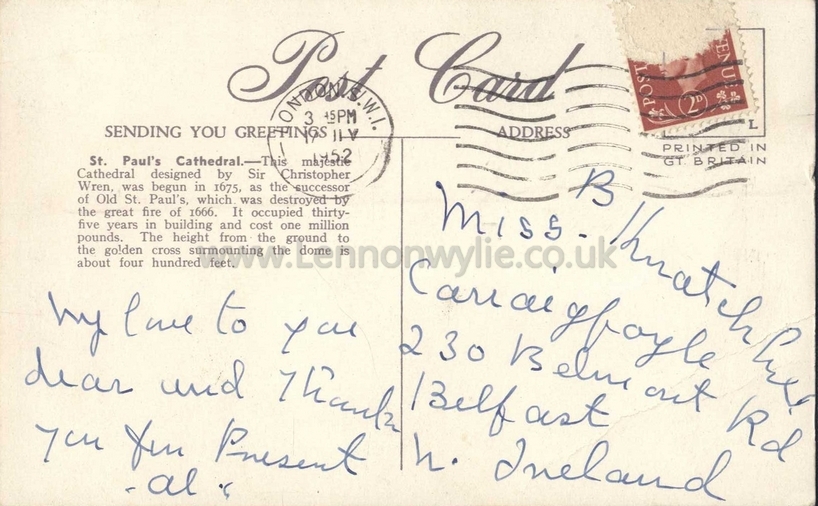 Post Card
LONDON.N.W.I.
3 45PM
17 IIV
1952
POST
ENUE
2D
L
SENDING YOU GREETINGS
ADDRESS
PRINTED IN
GT BRITAIN
St. Paul's Cathedral.—This majestic
Cathedral designed by Sir Christopher
Wren, was begun in 1675, as the successor
of Old St. Paul's, which was destroyed by
the great fire of 1666. It occupied thirty-
five years in building and cost one million
pounds. The height from the ground to
the golden cross surmounting the dome is
about four hundred feet.
www.Lennonwylie.co.uk
My love to you
dear and Thank
you for Present
- al "
Miss. B Knatchbull
Carraigfoyle
230 Belmont Rd
Belfast
N. Ireland